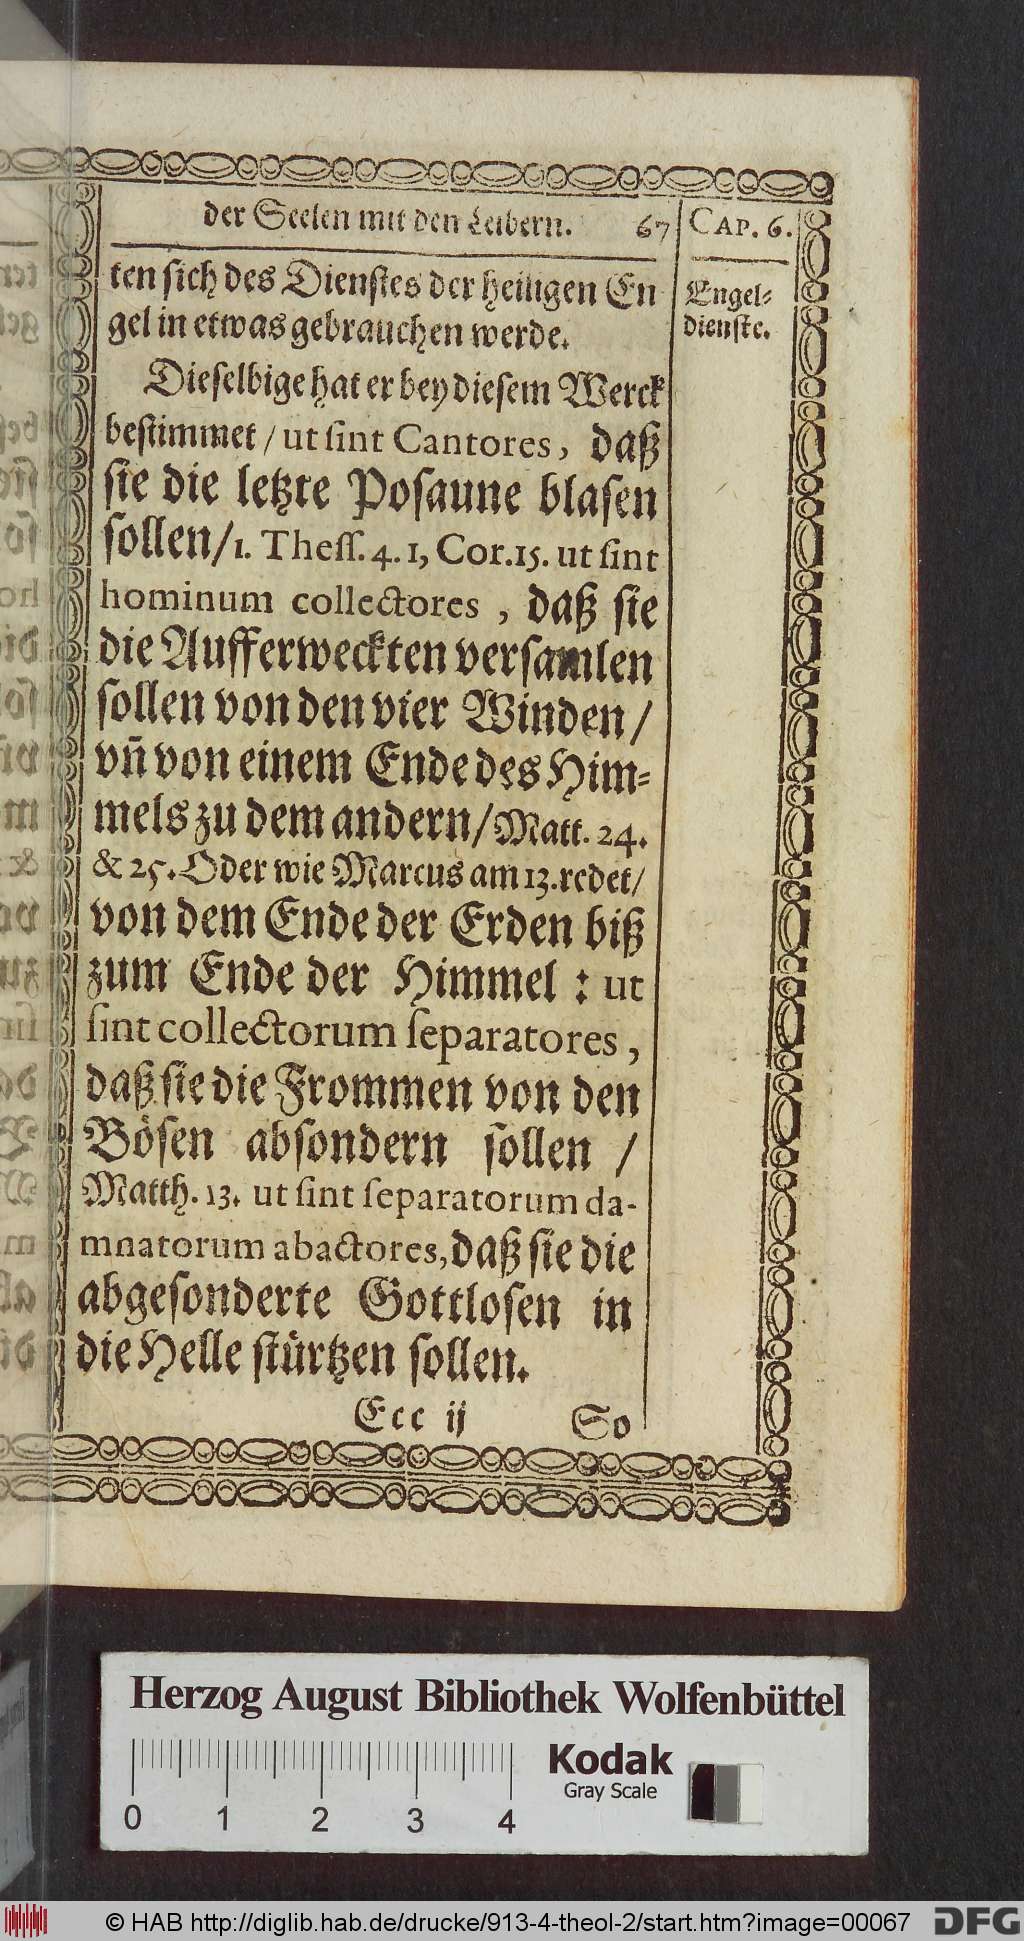 der Seelen mit den Leibern. 67
CAP. 6.
ten sich des Dienstes der heiligen En
gel in etwas gebrauchen werde.
Engel⸗
dienste.
Dieselbige hat er bey diesem Werck
bestimmet / ut sint Cantores, daß
sie die letzte Posaune blasen
sollen/1. Thess. 4. 1, Cor. 15. ut sint
hominum collectores, daß sie
die Aufferweckten versamlen
sollen von den vier Winden/
vñ von einem Ende des Him⸗
mels zu dem andern/Matt. 24.
& 25. Oder wie Marcus am 13. redet/
von dem Ende der Erden biß
zum Ende der Himmel : ut
sint collectorum separatores,
daß sie die Frommen von den
Bösen absondern sollen /
Matth. 13. ut sint separatorum da-
mnatorum abactores, daß sie die
abgesonderte Gottlosen in
die Helle stürtzen sollen.
Ecc ij So
Herzog August Bibliothek Wolfenbüttel
Kodak
Gray Scale
0 1 2 3 4
© HAB http://diglib.hab.de/drucke/913-4-theol-2/start.htm?image=00067
DFG